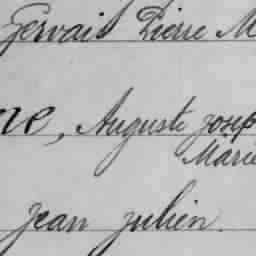 Gervais Pierre M
ne, Auguste josep
Marie
jean julien.